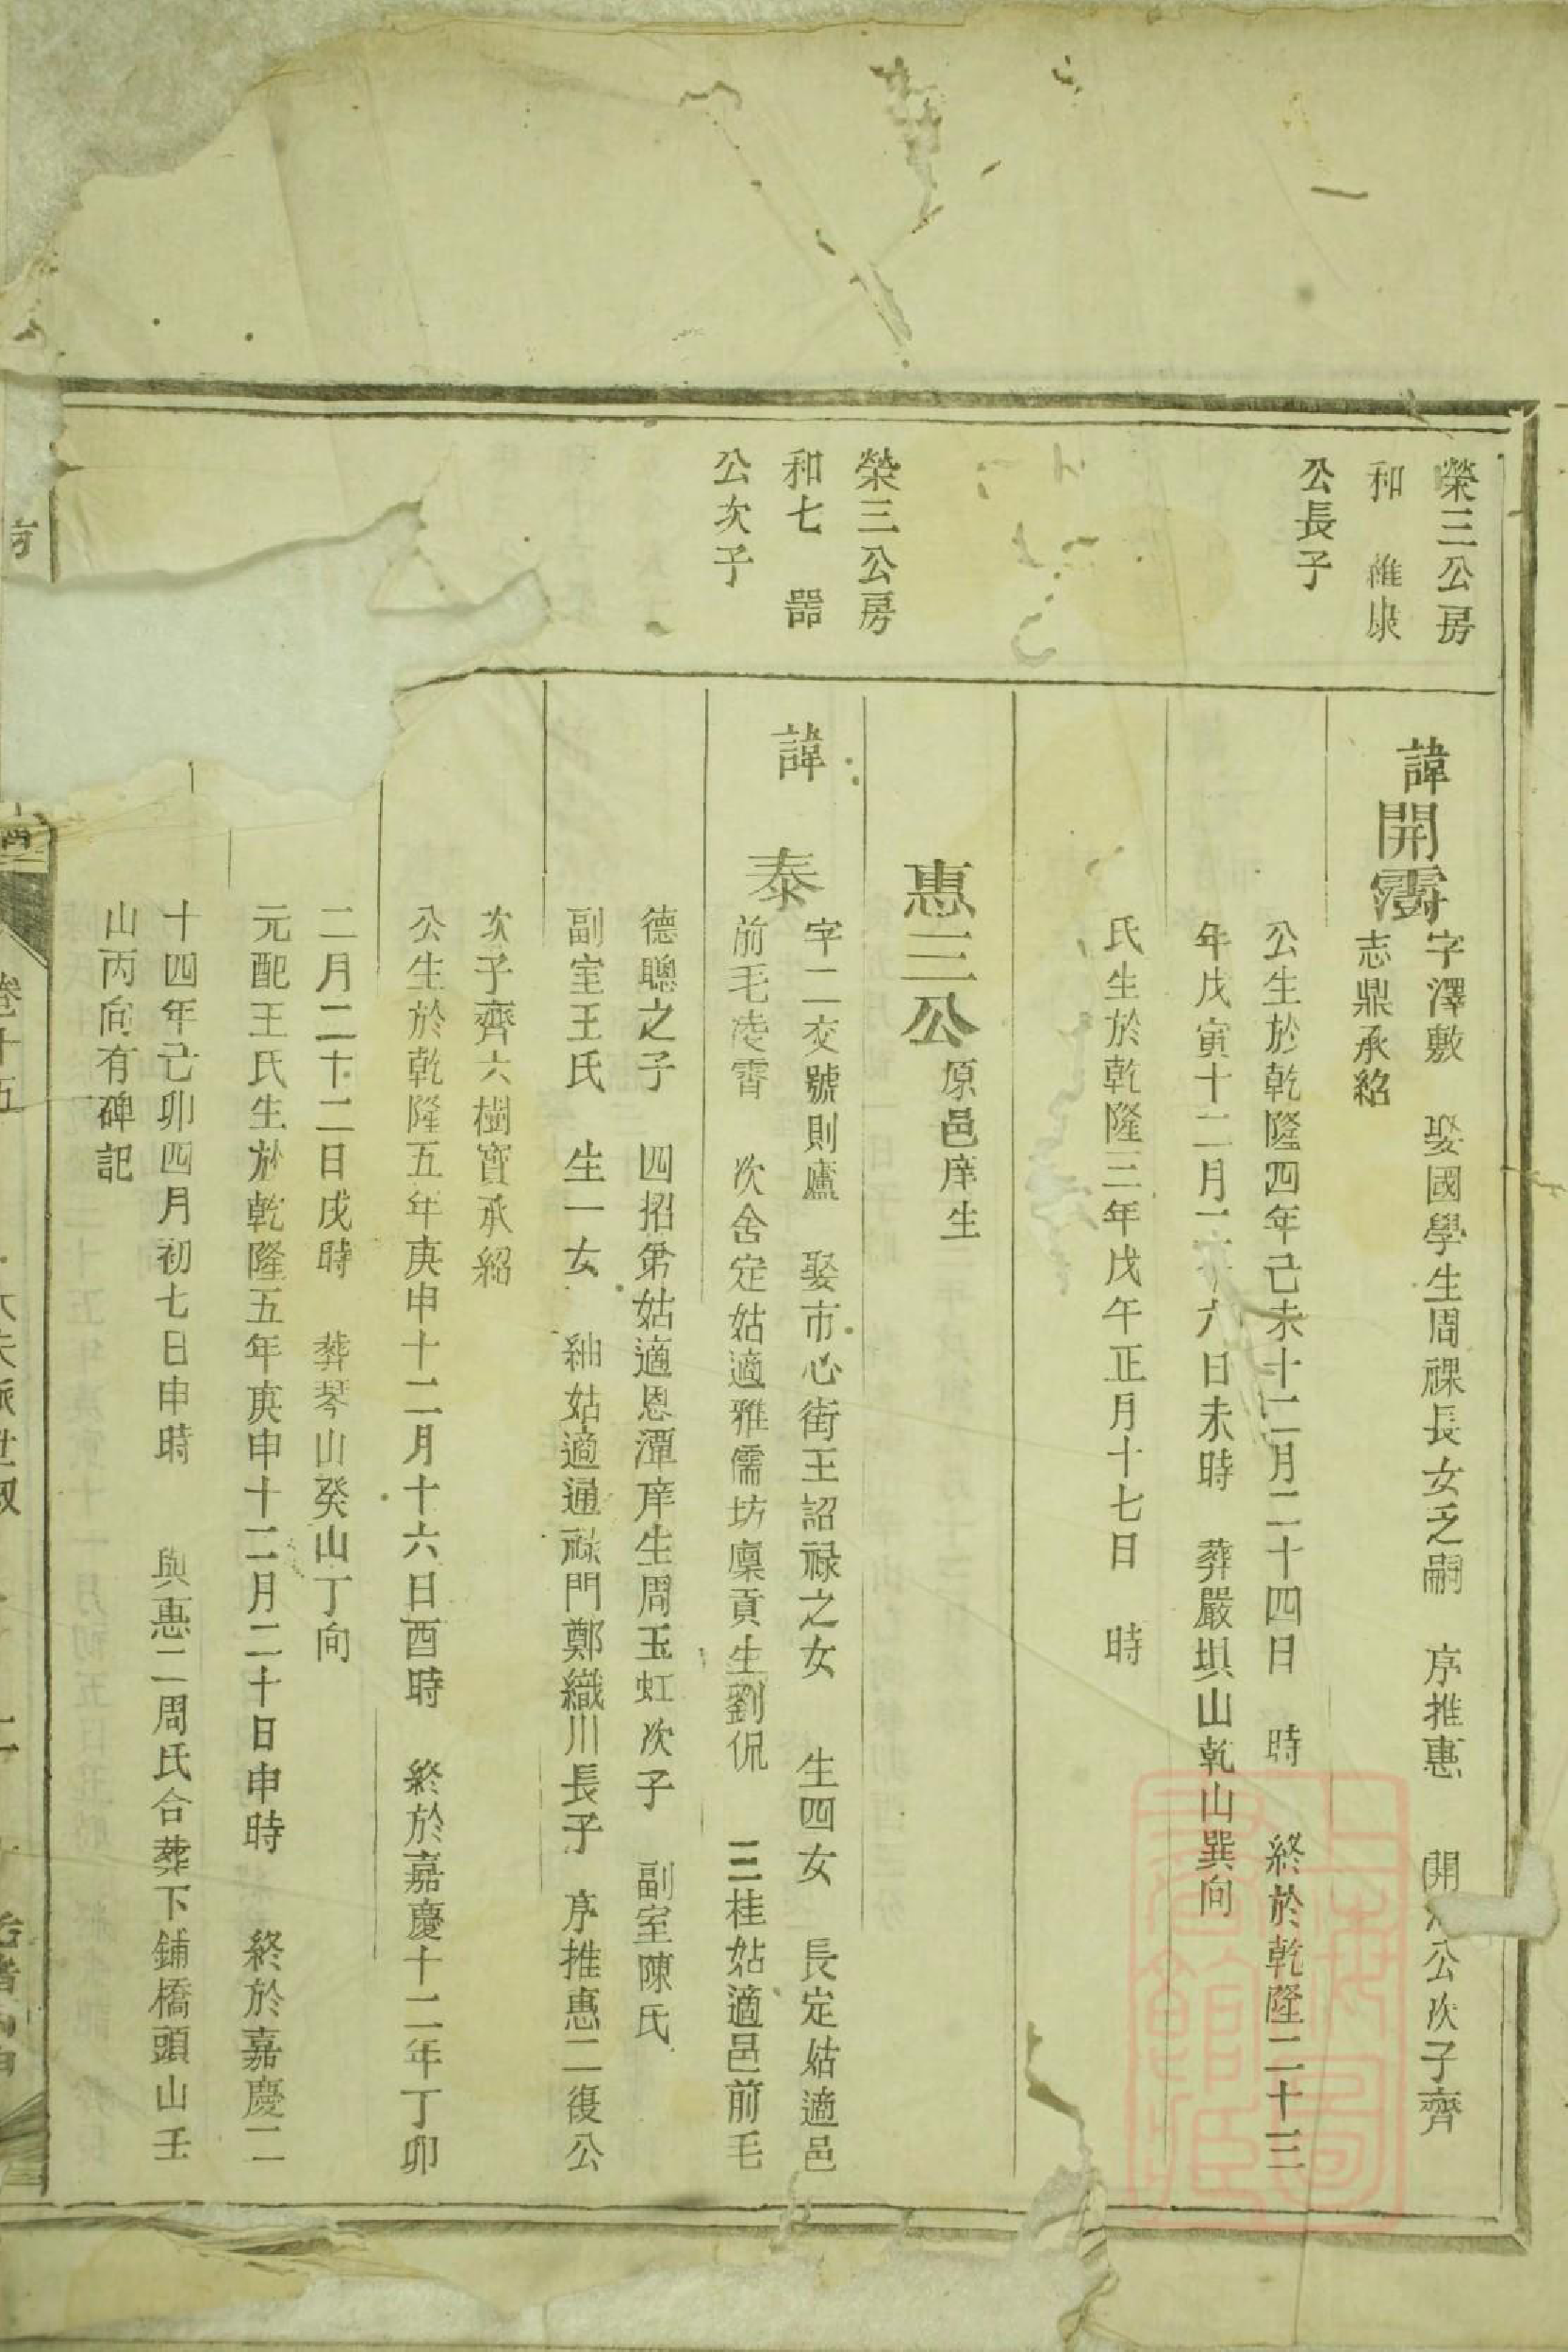 榮三公房
和 維康
公長子
諱開霶
字澤敷 娶國學生周祼長女乏嗣 序推惠 開公次子齊
志鼎承紹
公生於乾隆四年己未十二月二十四日 時 終於乾隆二十三
年戊寅十二月二十六日未時 葬嚴垻山乾山巽向
氏生於乾隆三年戊午正月十七日 時
惠三公 原邑庠生
榮三公房
和七 器
公次子
諱 泰
字二交號則廬 娶市心街王詔祿之女 生四女 長定姑適邑
前毛凌霄 次舍定姑適雅儒坊廩貢生劉侃 三桂姑適邑前毛
德聰之子 四招弟姑適恩潭庠生周玉虹次子 副室陳氏
副室王氏 生一女 紬姑適通祿門鄭織川長子 序推惠二復公
次子齊六樹寳承紹
公生於乾隆五年庚申十二月十六日酉時 終於嘉慶十二年丁卯
二月二十二日戌時 葬琴山癸山丁向
元配王氏生於乾隆五年庚申十二月二十日申時 終於嘉慶二
十四年己卯四月初七日申時 與惠二周氏合葬下鋪橋頭山壬
山丙向有碑記
卷十五